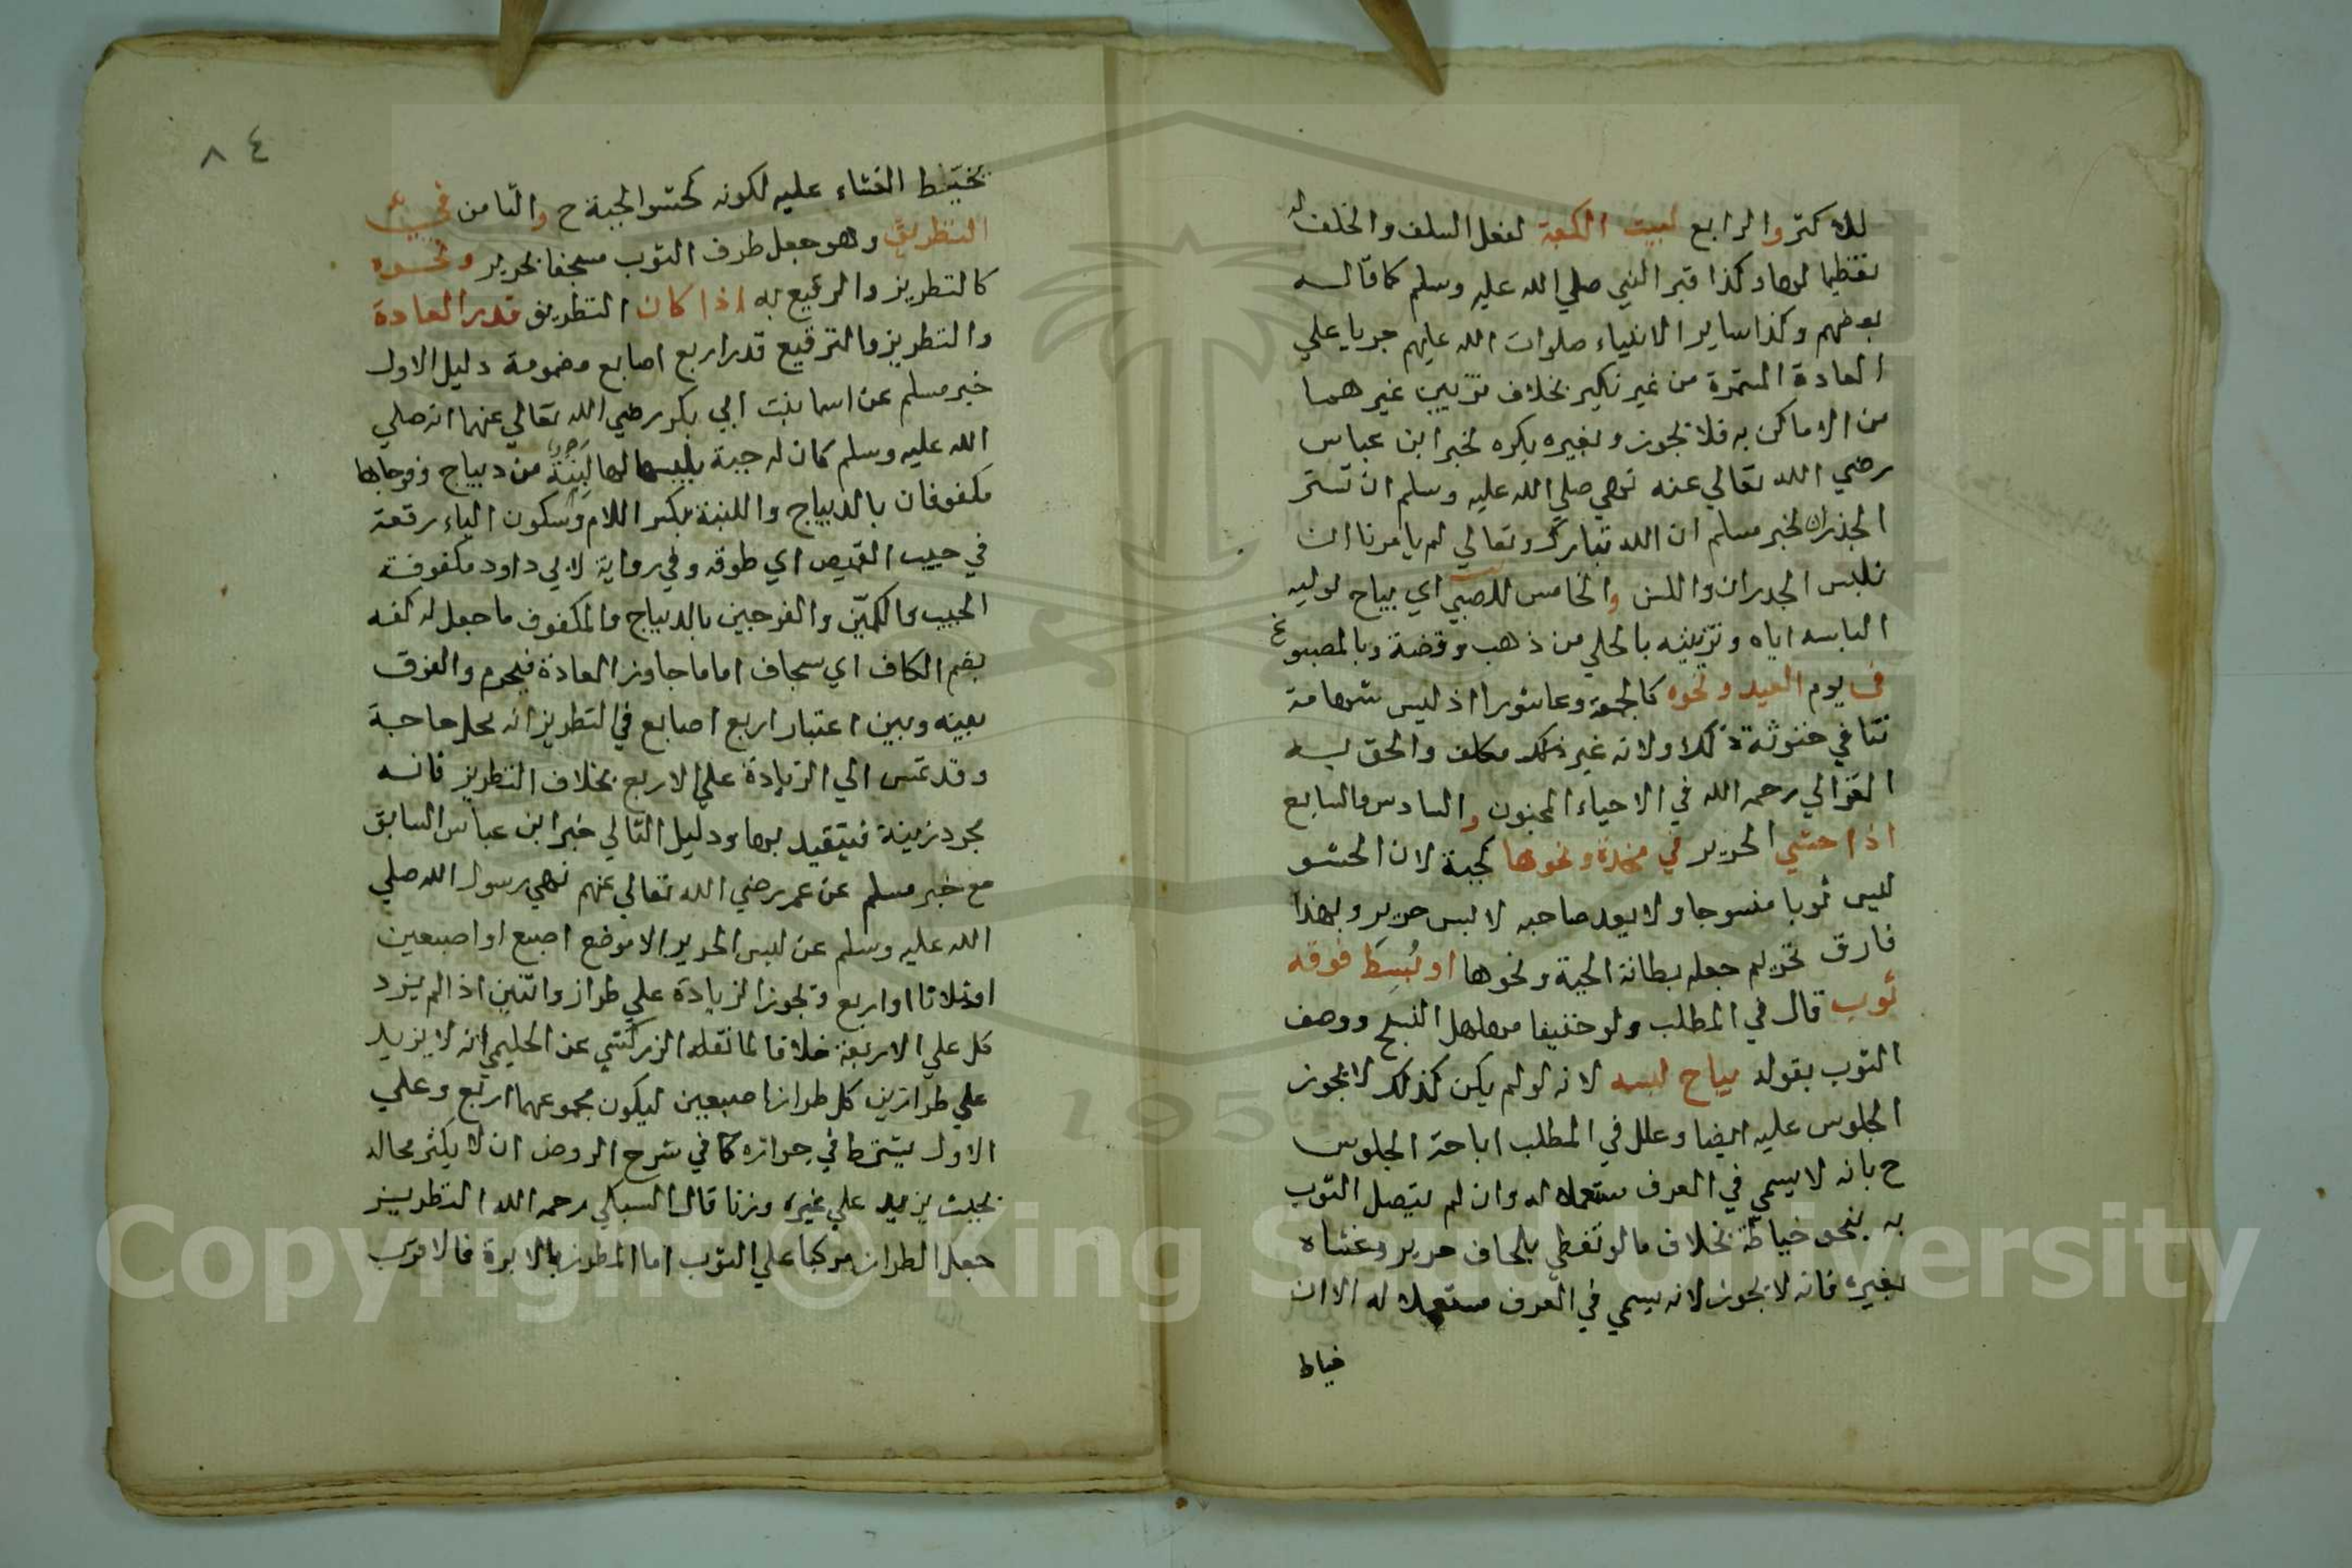 للاكثر والرابع لبيت الكعبة لفعل السلف والخلف له
تعظيما لها وكذا قبر النبي صلي الله عليه وسلم كما قاله
بعضهم وكذا ساير الانبياء صلوات الله عليهم جريا علي
العادة المستمرة من غير نكير بخلاف تزيين غيرهما
من الاماكن به فلا يجوز وبغيره يكره لخبر ابن عباس
رضي الله تعالي عنه نهي صلي الله عليه وسلم ان تستر
الجدران لخبر مسلم ان الله تبارك وتعالي لم يامرنا ان
نلبس الجدران واللبن والخامس للصبي اي يباح لوليه
الباسه اياه وتزيينه بالحلي من ذهب وفضة وبالمصبوغ
في يوم العيد ونحوه كالجمعة وعاشورا اذ ليس شهامة
تنافي خنوثة ذلك ولانه غير مكلف والحق به
الغزالي رحمه الله في الاحياء المجنون والسادس والسابع
اذا حشي الحرير في مخدة ونحوها كجبة لان الحشو
ليس ثوبا منسوجا ولا يعد صاحبه لابس حرير وبهذا
فارق تحريم جعله بطانة الجبة ونحوها او بُسِطَ فوقه
ثوب قال في المطلب ولو خفيفا مهلهل النسج ووصف
الثوب بقوله يباح لبسه لانه لو لم يكن كذلك لا يجوز
الجلوس عليه ايضا وعلل في المطلب اباحة الجلوس
ح بانه لا يسمي في العرف مستعملا له وان لم يتصل الثوب
به بنحو خياطة بخلاف ما لو تغطي بلحاف حرير وغشاه
بغيره فانه لا يجوز لانه يسمي في العرف مستعملا له الا ان
خياط
٨٤
يخيط الغشاء عليه لكونه كحشو الجبة ح والثامن في
التطريق وهو جعل طرف الثوب مسجفا بحرير ونحوه
كالتطريز والرقيع به اذا كان التطريق قدر العادة
والتطريز والترقيع قدر اربع اصابع مضمومة دليل الاول
خبر مسلم عن اسما بنت ابي بكر رضي الله تعالي عنهما انه صلي
الله عليه وسلم كان له جبة يلبسها لها لبنة من ديباج وفرجاها
مكفوفان بالديباج واللبنة بكسر اللام وسكون الباء رقعة
في جيب القميص اي طوقه وفي رواية لابي داود مكفوفة
الجيب والكمّين والفرجين بالديباج والمكفوف ما جعل له كفه
بضم الكاف اي سجاف اما ما جاوز العادة فيحرم والفرق
بينه وبين اعتبار اربع اصابع في التطريز انه محل حاجة
وقد تمس الي الزيادة علي الاربع بخلاف التطريز فانه
مجرد زينة فيتقيد بها ودليل الثاني خبر ابن عباس السابق
مع خبر مسلم عن عمر رضي الله تعالي عنهم نهي رسول الله صلي
الله عليه وسلم عن لبس الحرير الا موضع اصبع او اصبعين
او ثلاثا او اربع وتجوز الزيادة علي طراز واثنين اذا لم يزد
كل علي الاربعة خلافا لما نقله الزركشي عن الحليمي انه لا يزيد
علي طرازين كل طراز اصبعين ليكون مجموعهما اربع وعلي
الاول يشترط في جوازه كما في شرح الروض ان لا يكثر محاله
بحيث يزيد علي غيره وزنا قال السبكي رحمه الله التطريز
جعل الطراز مركبا علي الثوب اما المطرز بالابرة فالاقرب
Copyright © King Saud University
195